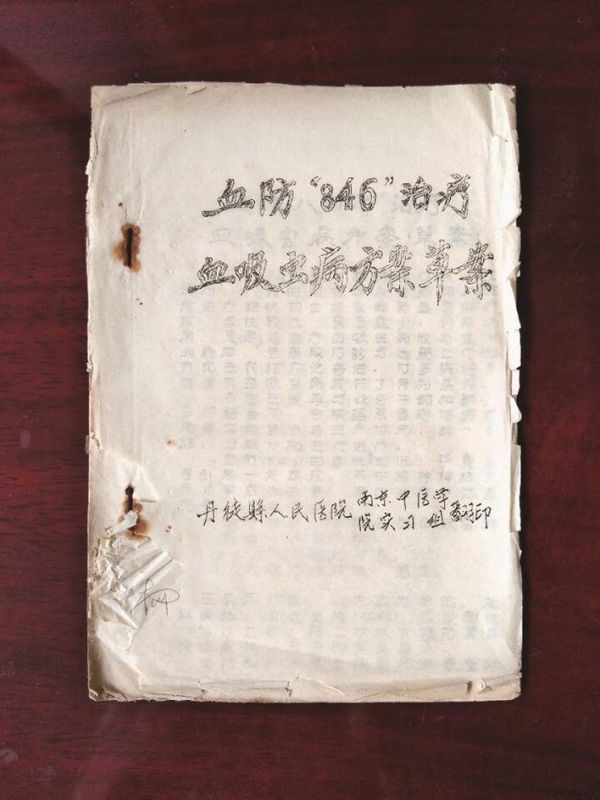 血防“846”治疗
血吸虫病方案草案
丹徒縣人民医院 南京中医学
院实习组 翻印